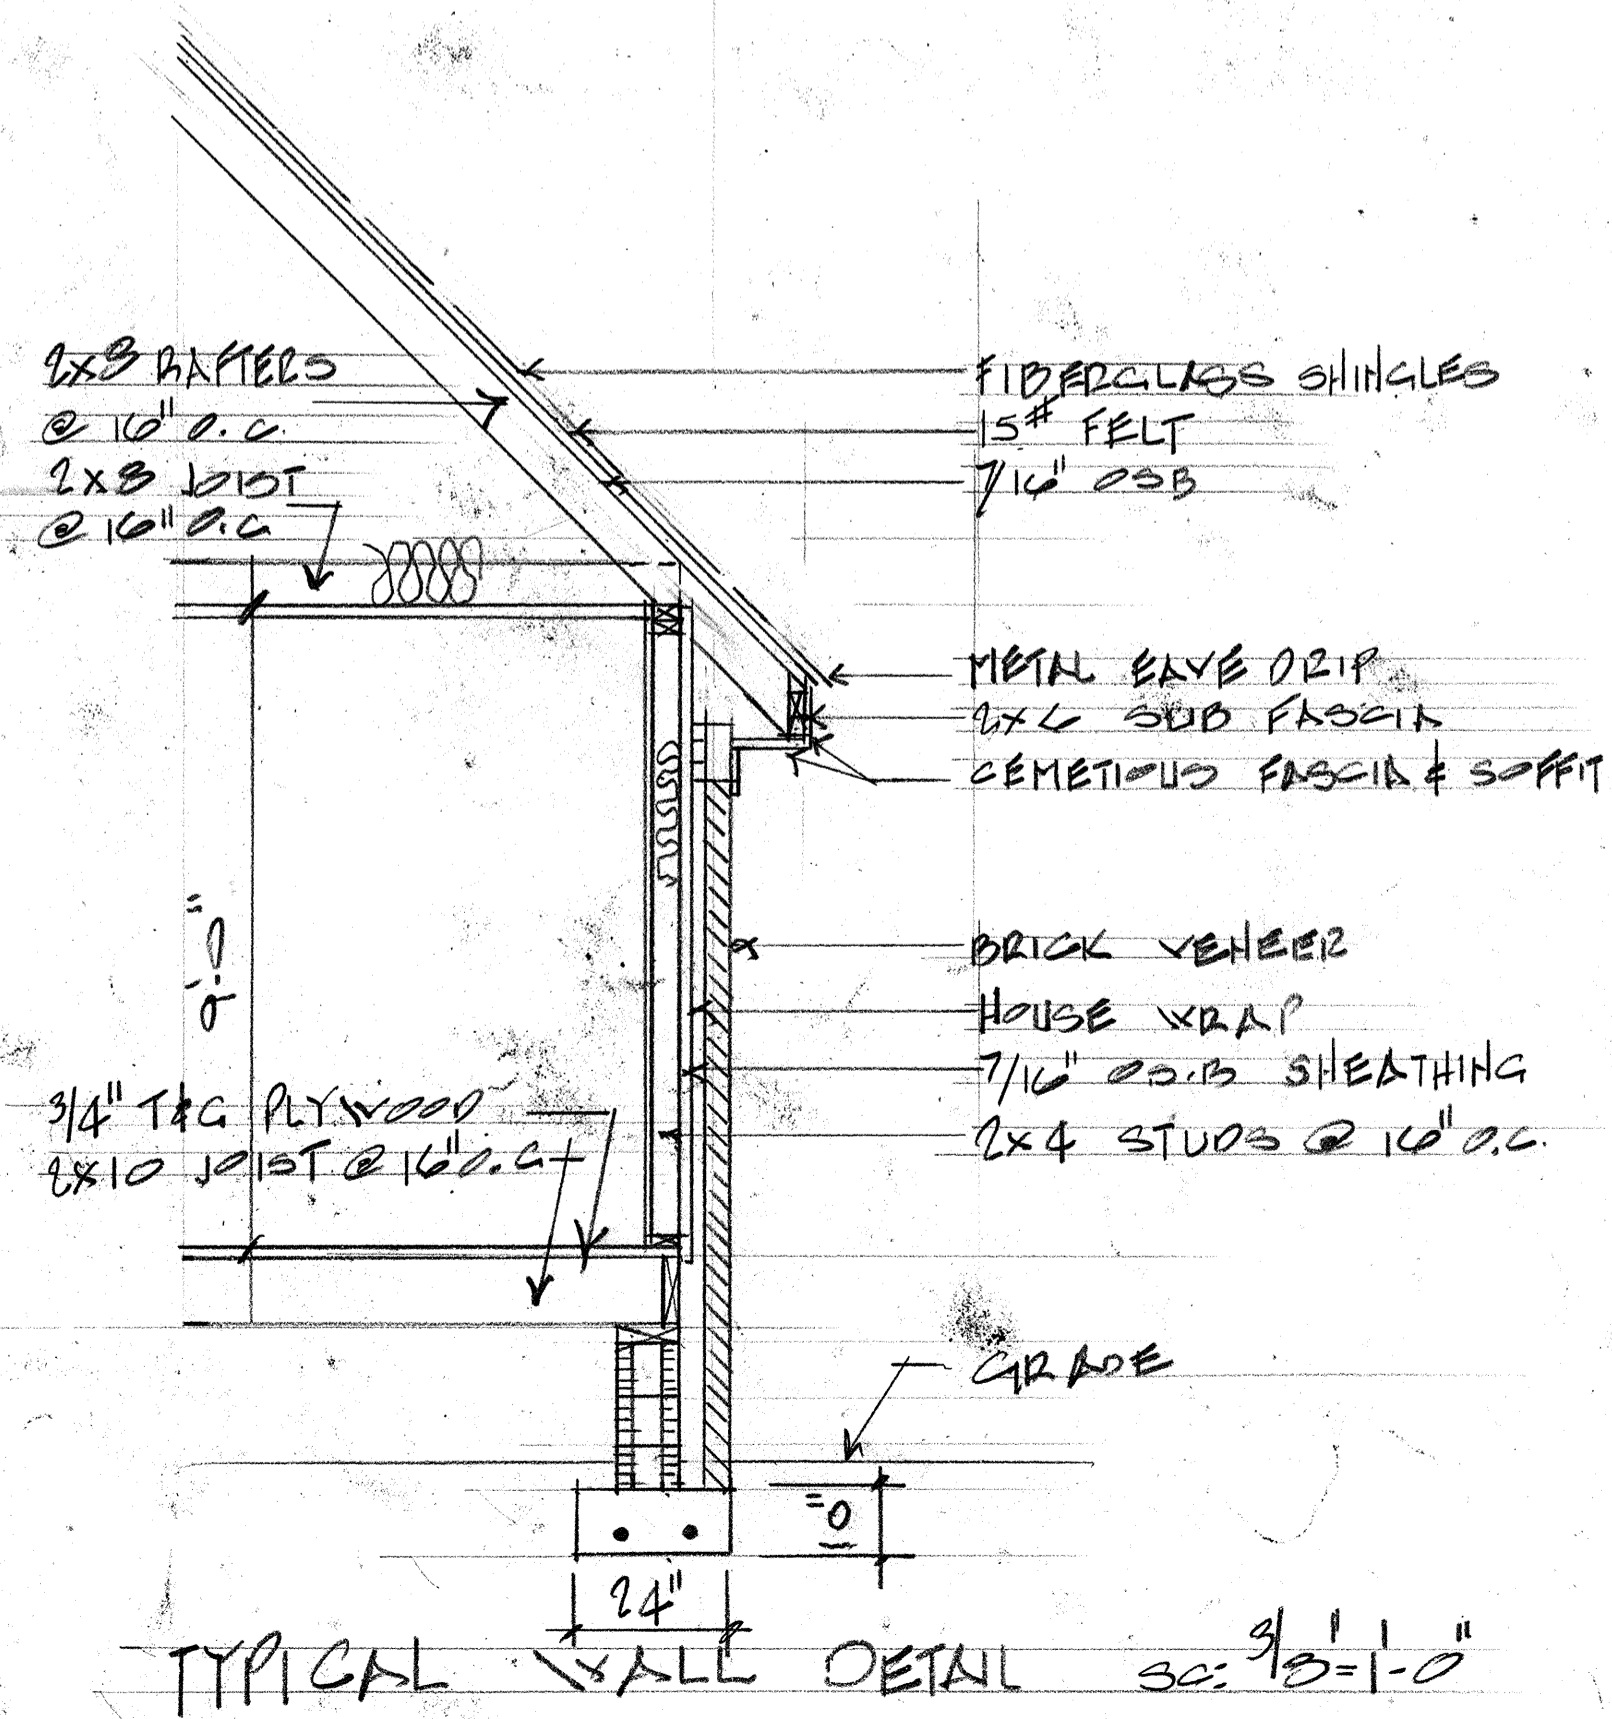 2x8 RAFTERS
@ 16" O.C.
2x8 JOIST
@ 16" O.C
FIBERGLASS SHINGLES
15# FELT
7/16" OSB
METAL EAVE DRIP
2x6 SUB FASCIA
CEMETIOUS FASCIA & SOFFIT
9'-0"
BRICK VENEER
HOUSE WRAP
7/16" O.S.B SHEATHING
2x4 STUDS @ 16" O.C.
3/4" T&G PLYWOOD
2x10 JOIST @ 16" O.C
GRADE
10"
24"
TYPICAL WALL DETAIL SC: 3/8'=1'-0"